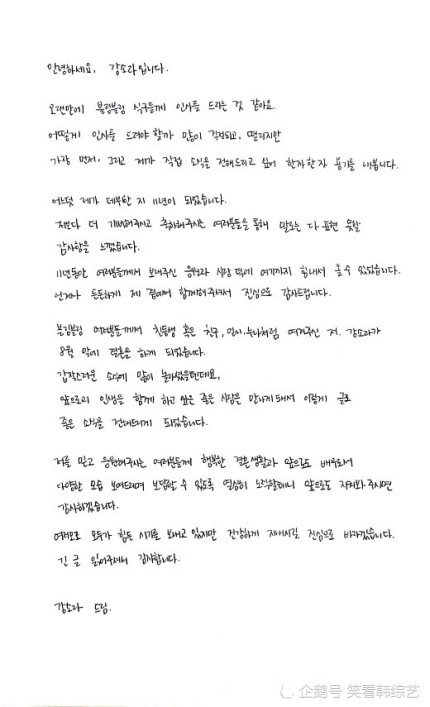 안녕하세요, 강소라입니다.
오랜만에 볼링볼링 식구들께 인사를 드리는 것 같아요.
어떻게 인사를 드려야 할까 많이 걱정되고, 떨리지만
가장 먼저, 그리고 제가 직접 소식을 전해드리고 싶어 한자 한자 용기를 내봅니다.
어느덧 제가 데뷔한 지 11년이 되었습니다.
저보다 더 기뻐해주시고 축하해주시는 여러분들을 통해 말로는 다 표현 못할
감사함을 느꼈습니다.
11년동안 여러분들께서 보내주신 응원과 사랑 덕에 여기까지 힘내서 올 수 있었습니다.
언제나 든든하게 제 곁에서 함께해주셔서 진심으로 감사드립니다.
볼링볼링 여러분들께서 친동생 혹은 친구, 언니·누나처럼 여겨주신 저, 강소라가
8월 말에 결혼을 하게 되었습니다.
갑작스러운 소식에 많이 놀라셨을텐데요,
앞으로의 인생을 함께 하고 싶은 좋은 사람을 만나게 돼서 이렇게 글로
좋은 소식을 전해드리게 되었습니다.
저를 믿고 응원해주시는 여러분들께 행복한 결혼생활과 앞으로도 배우로서
다양한 모습 보여드리며 보답할 수 있도록 열심히 노력할테니 앞으로도 지켜봐 주시면
감사하겠습니다.
여러모로 모두가 힘든 시기를 보내고 있지만 건강하게 지내시길 진심으로 바라겠습니다.
긴 글 읽어주셔서 감사합니다.
강소라 드림.
企鹅号 笑看韩综艺